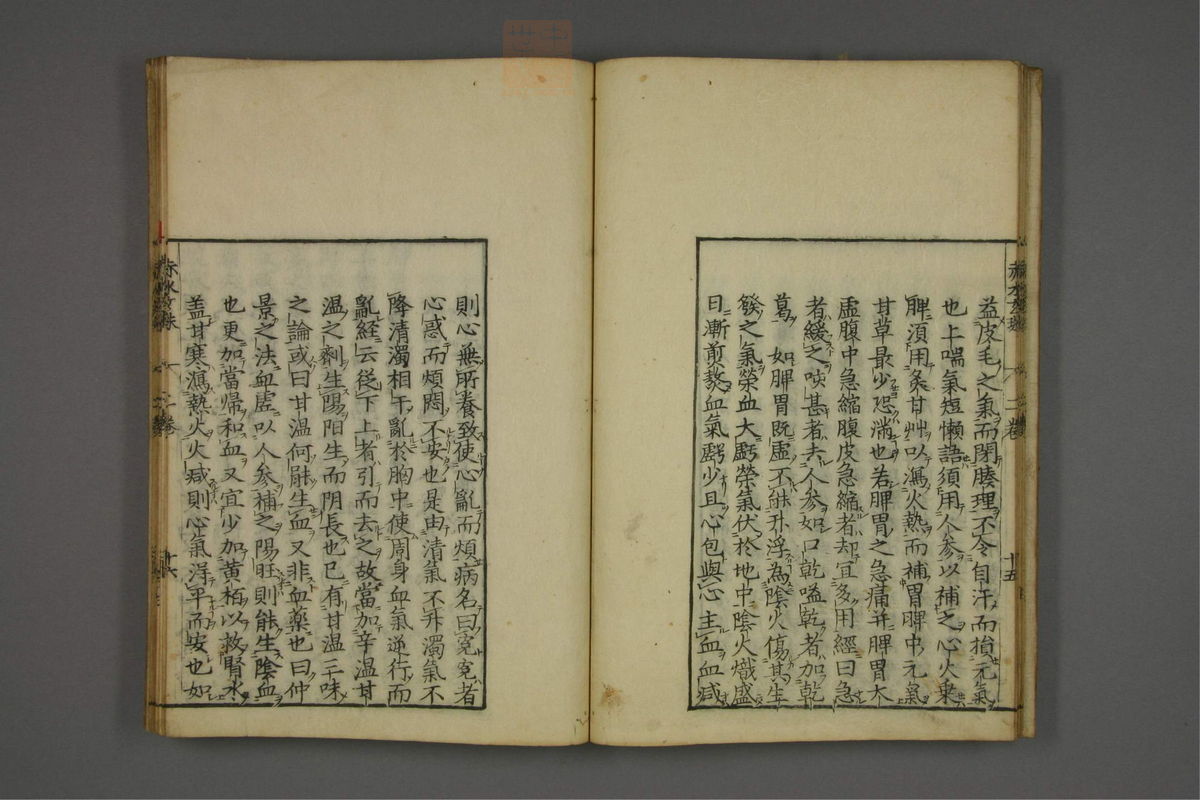 益皮毛之氣而閉腠理不令自汗而損元氣
也上喘氣短懶語須用人參以補之心火乗
脾須用炙甘艸以瀉火熱而補胃脾中元氣
甘草最少恐滿也若脾胃之急痛并脾胃大
虚腹中急縮腹皮急縮者却宜多用經曰急
者緩之咳甚者去人參如口乾嗌乾者加乾
葛 如脾胃既虚不能升浮為陰火傷其生
發之氣榮血大虧榮氣伏於地中陰火熾盛
日漸煎熬血氣虧少且心包與心主血血减
十五
則心無所養致使心亂而煩病名曰寃寃者
心惑而煩悶不安也是由清氣不升濁氣不
降清濁相干亂於胸中使周身血氣逆行而
亂經云從下上者引而去之故當加辛温甘
温之劑生陽陽生而阴長也已有甘温三味
之論或曰甘温何能生血又非血藥也曰仲
景之法血虚以人參補之陽旺則能生陰血
也更加當帰和血又宜少加黄栢以救腎水
盖甘寒瀉熱火火减則心氣得平而安也如
赤水玄珠 十二卷 十六